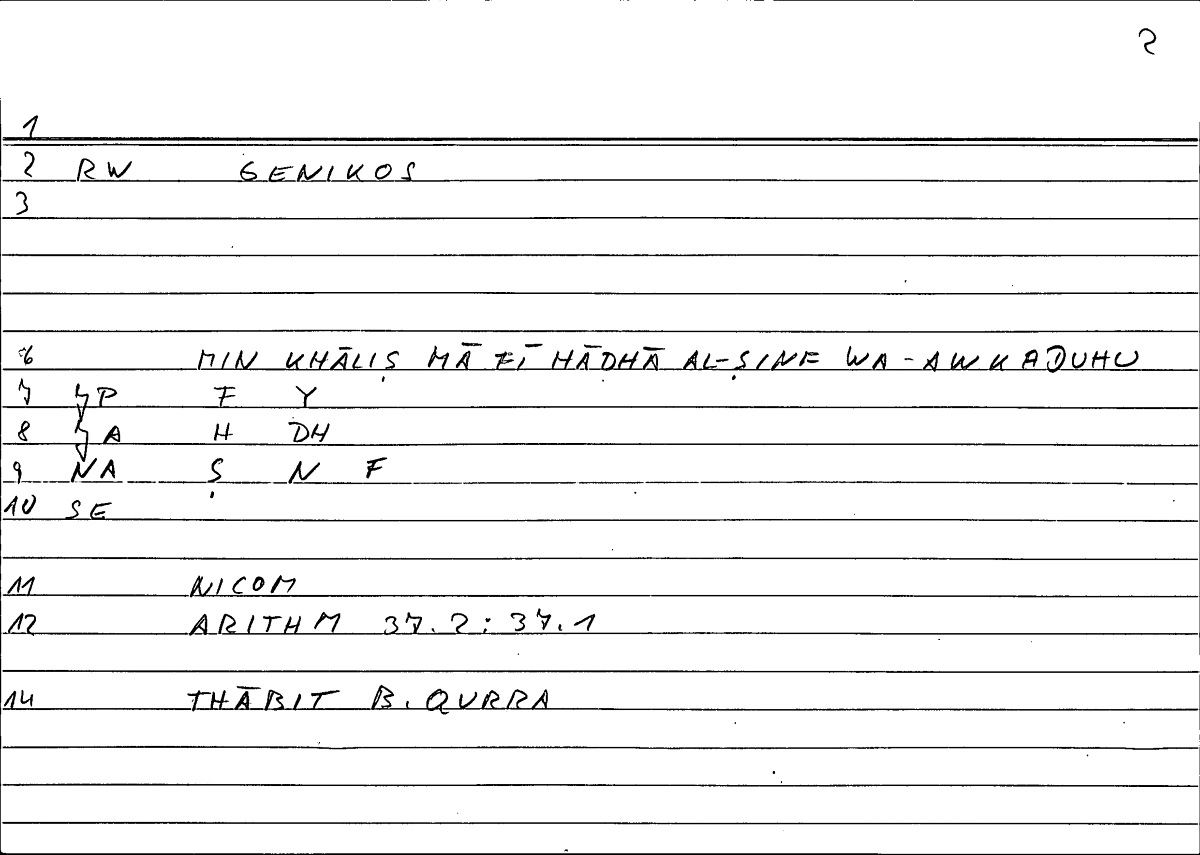 2
1
2 RW GENIKOS
3
6 MIN KHĀLIṢ MĀ FĪ HĀDHĀ AL-ṢINF WA-AWKADUHU
7 P F Y
8 A H DH
9 NA Ṣ N F
10 SE
11 NICOM
12 ARITHM 37.2:37.1
14 THĀBIT B. QURRA